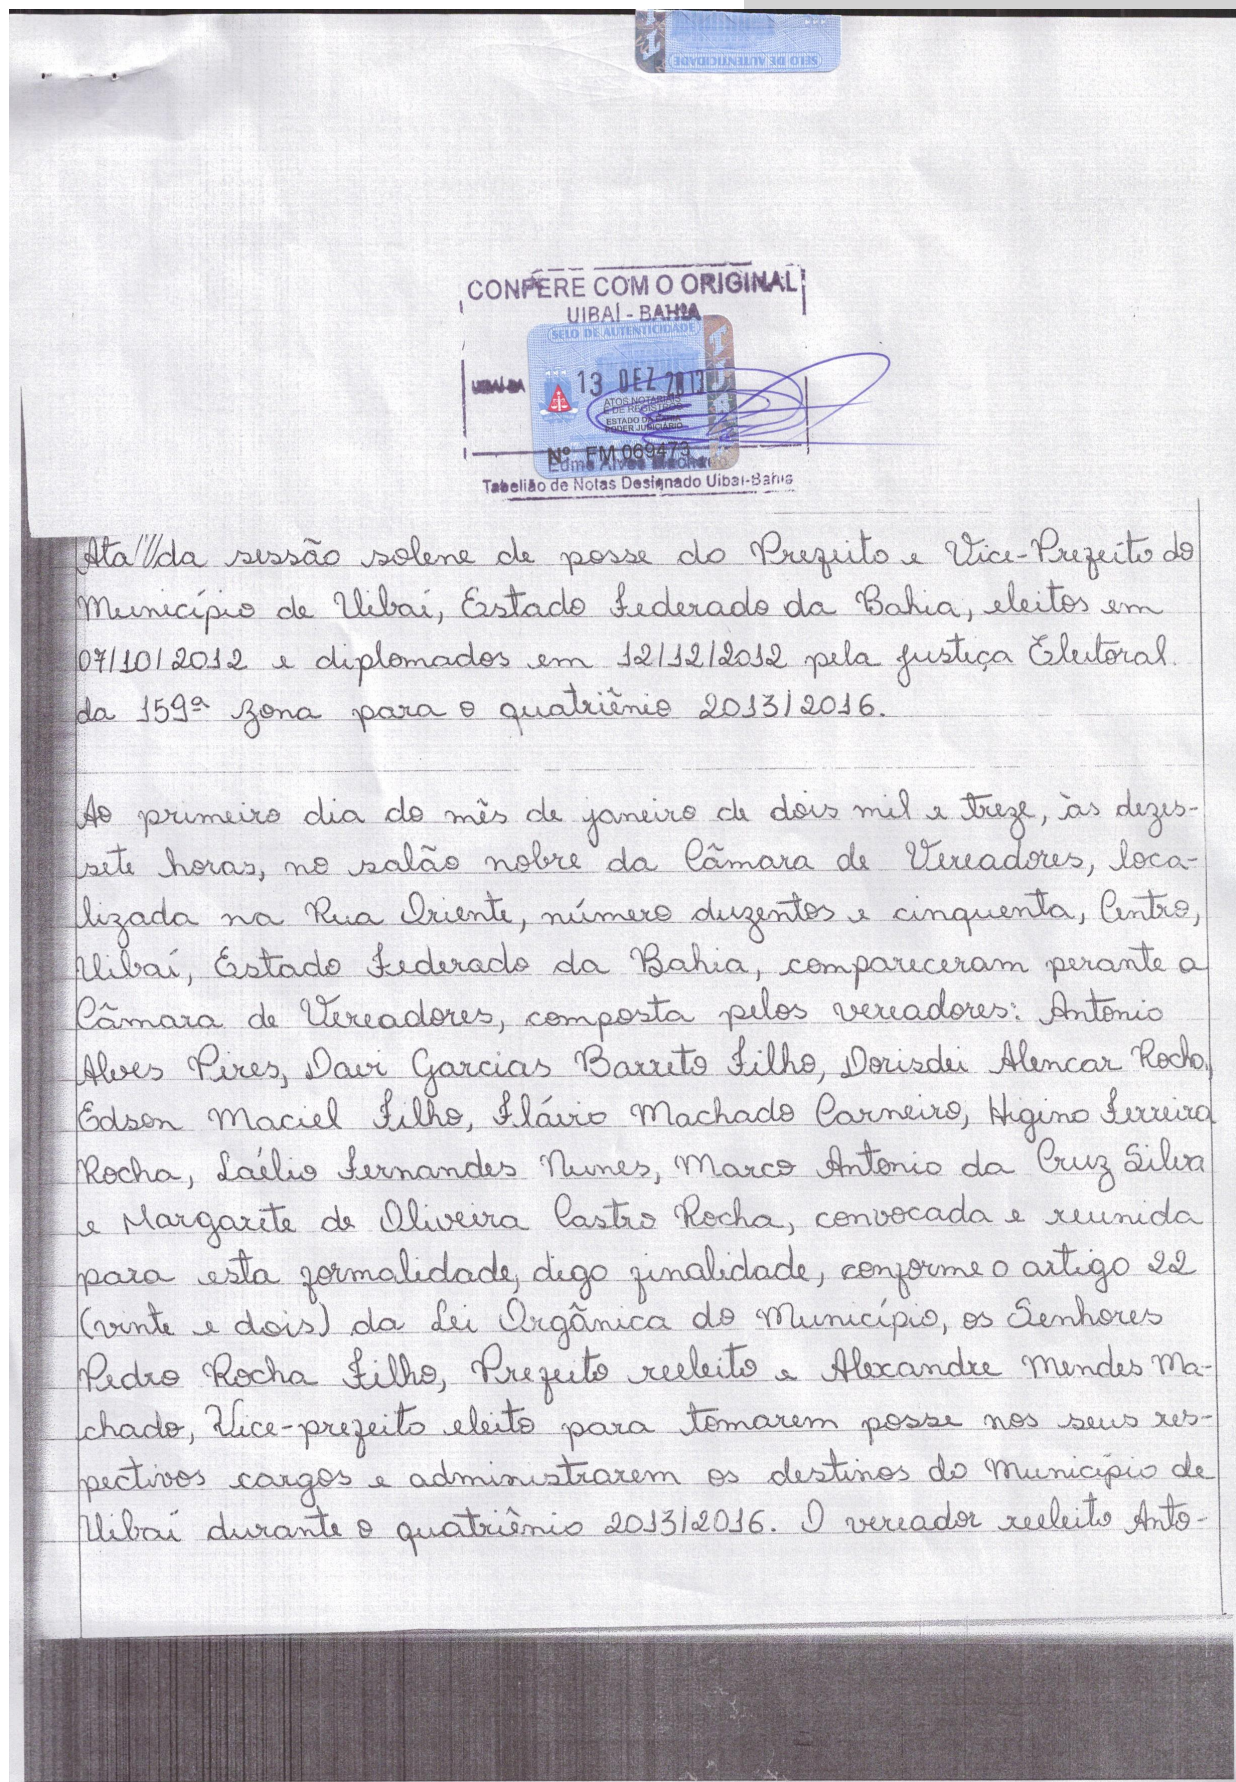 SELO DE AUTENTICIDADE
CONFERE COM O ORIGINAL
UIBAÍ - BAHIA
SELO DE AUTENTICIDADE
UIBAÍ-BA
13 DEZ 2013
ATOS NOTARIAIS
E DE REGISTROS
ESTADO DA BAHIA
PODER JUDICIÁRIO
Nº FM 069473
Tabelião de Notas Designado Uibaí-Bahia
Ata da sessão solene de posse do Prefeito e Vice-Prefeito do
Município de Uibaí, Estado Federado da Bahia, eleitos em
07/10/2012 e diplomados em 12/12/2012 pela Justiça Eleitoral
da 159ª zona para o quatriênio 2013/2016.
Ao primeiro dia do mês de janeiro de dois mil e treze, às dezes-
sete horas, no salão nobre da Câmara de Vereadores, loca-
lizada na Rua Oriente, número duzentos e cinquenta, Centro,
Uibaí, Estado Federado da Bahia, compareceram perante a
Câmara de Vereadores, composta pelos vereadores: Antonio
Alves Pires, Davi Garcias Barreto Filho, Dorisdei Alencar Rocha,
Edson Maciel Filho, Flávio Machado Carneiro, Higino Ferreira
Rocha, Laélio Fernandes Nunes, Marco Antonio da Cruz Silva
e Margarete de Oliveira Castro Rocha, convocada e reunida
para esta formalidade, digo finalidade, conforme o artigo 22
(vinte e dois) da Lei Orgânica do Município, os Senhores
Pedro Rocha Filho, Prefeito reeleito e Alexandre Mendes Ma-
chado, Vice-prefeito eleito para tomarem posse nos seus res-
pectivos cargos e administrarem os destinos do Município de
Uibaí durante o quatriênio 2013/2016. O vereador reeleito Anto-